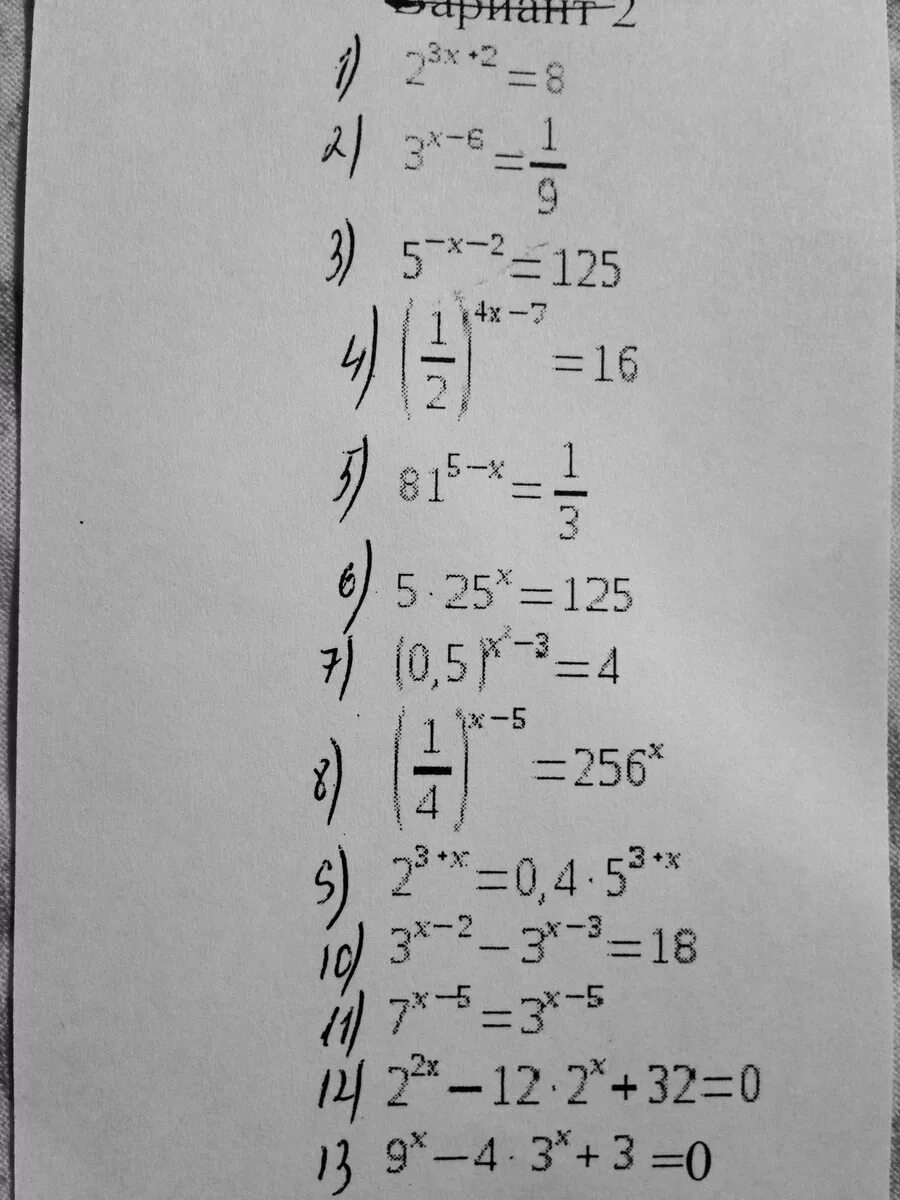 Вариант 2
1) 2^{3x+2} = 8
2) 3^{x-6} = \frac{1}{9}
3) 5^{-x-2} = 125
4) \left(\frac{1}{2}\right)^{4x-7} = 16
5) 81^{5-x} = \frac{1}{3}
6) 5 · 25^{x} = 125
7) (0,5)^{x^2-3} = 4
8) \left(\frac{1}{4}\right)^{x-5} = 256^{x}
9) 2^{3+x} = 0,4 · 5^{3+x}
10) 3^{x-2} - 3^{x-3} = 18
11) 7^{x-5} = 3^{x-5}
12) 2^{2x} - 12 · 2^{x} + 32 = 0
13 9^{x} - 4 · 3^{x} + 3 = 0